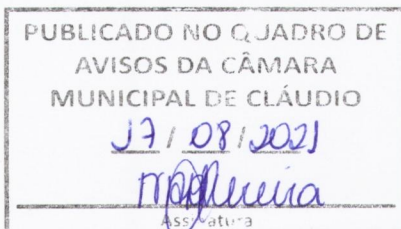 PUBLICADO NO QUADRO DE
AVISOS DA CÂMARA
MUNICIPAL DE CLÁUDIO
17/08/2021
Assinatura